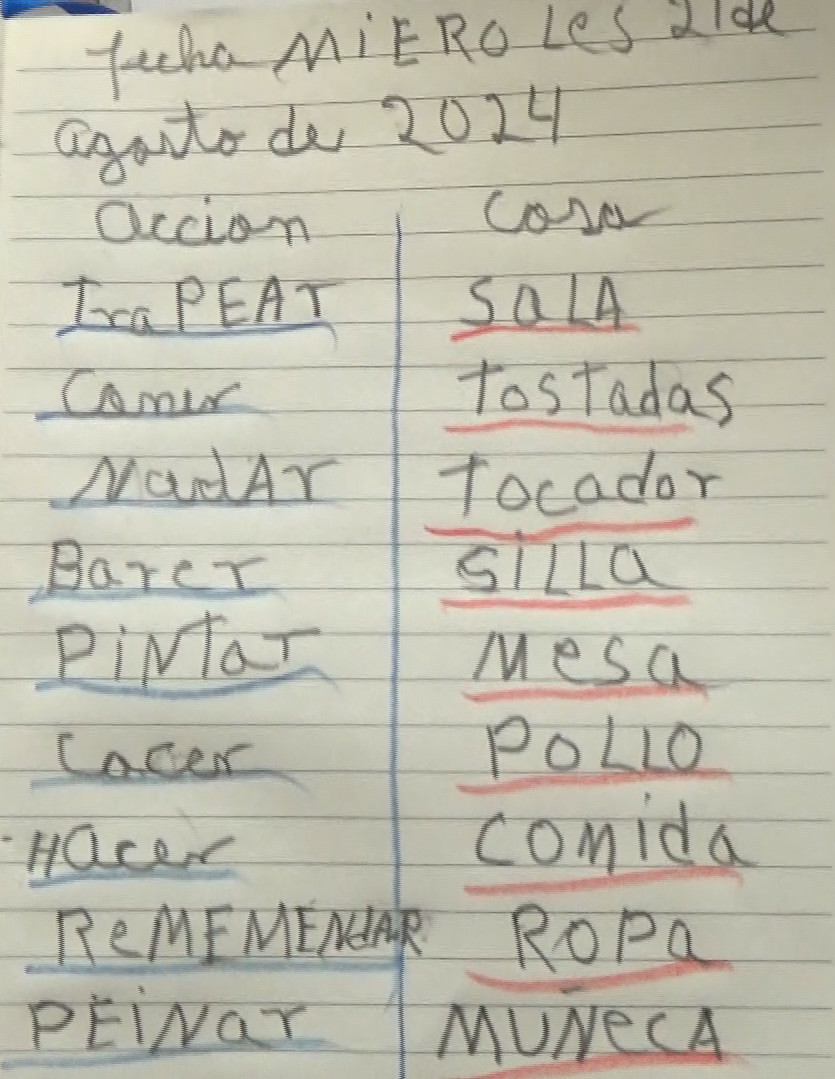 fecha MiERoLes 21 de
agosto de 2024
accion cosa
TraPEAr SaLA
Comer Tostadas
MandAr Tocador
Barer SiLLa
PiNTar Mesa
Cocer PoLLO
HAcer comida
ReMEMENdAR ROPa
PEiNar MUÑeCA